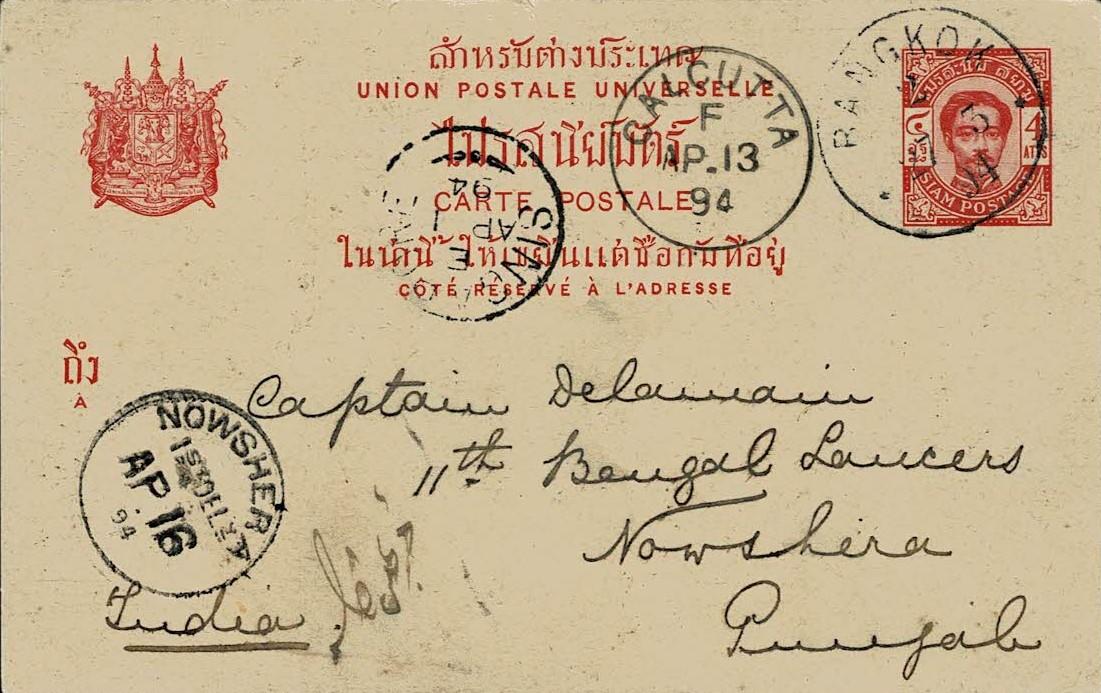 สำหรับต่างประเทศ
UNION POSTALE UNIVERSELLE
ไปรสนียบัตร์
CARTE POSTALE
ในน่านี้ ให้เขียนแต่ชื่อกับที่อยู่
CÔTÉ RÉSERVÉ À L'ADRESSE
CALCUTTA
F
AP.13
94
BANGKOK
94
4
ATTS
SIAM POST
AP
94
ถึง
À
NOWSHERA
1ST DEL
AP 16
94
Captain Delamain
11th Bengal Lancers
Nowshera
Punjab
India